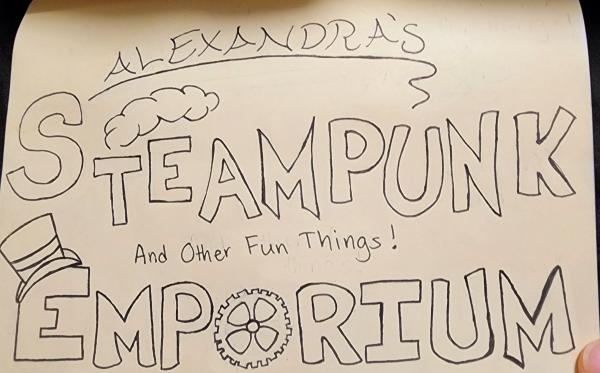 ALEXANDRA'S
STEAMPUNK
And Other Fun Things!
EMPORIUM